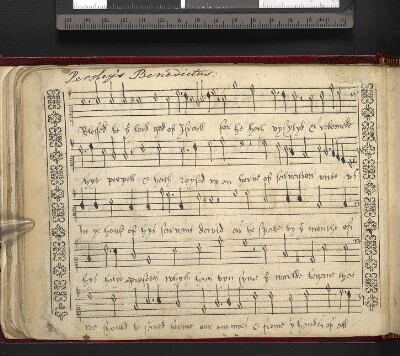 Persleys Benedictus.
Blessed be yͤ lord god of Israell for he hath vysytyd & redemed
hys people & hath reysed up an horne of salvation unto vs
In yͤ house of hys servant david as he spake by yͤ mouthe of
hys holye prophetes whych have ben syns yͤ worlde began that
We should be saved frome our enymies & frome yͤ handes of all